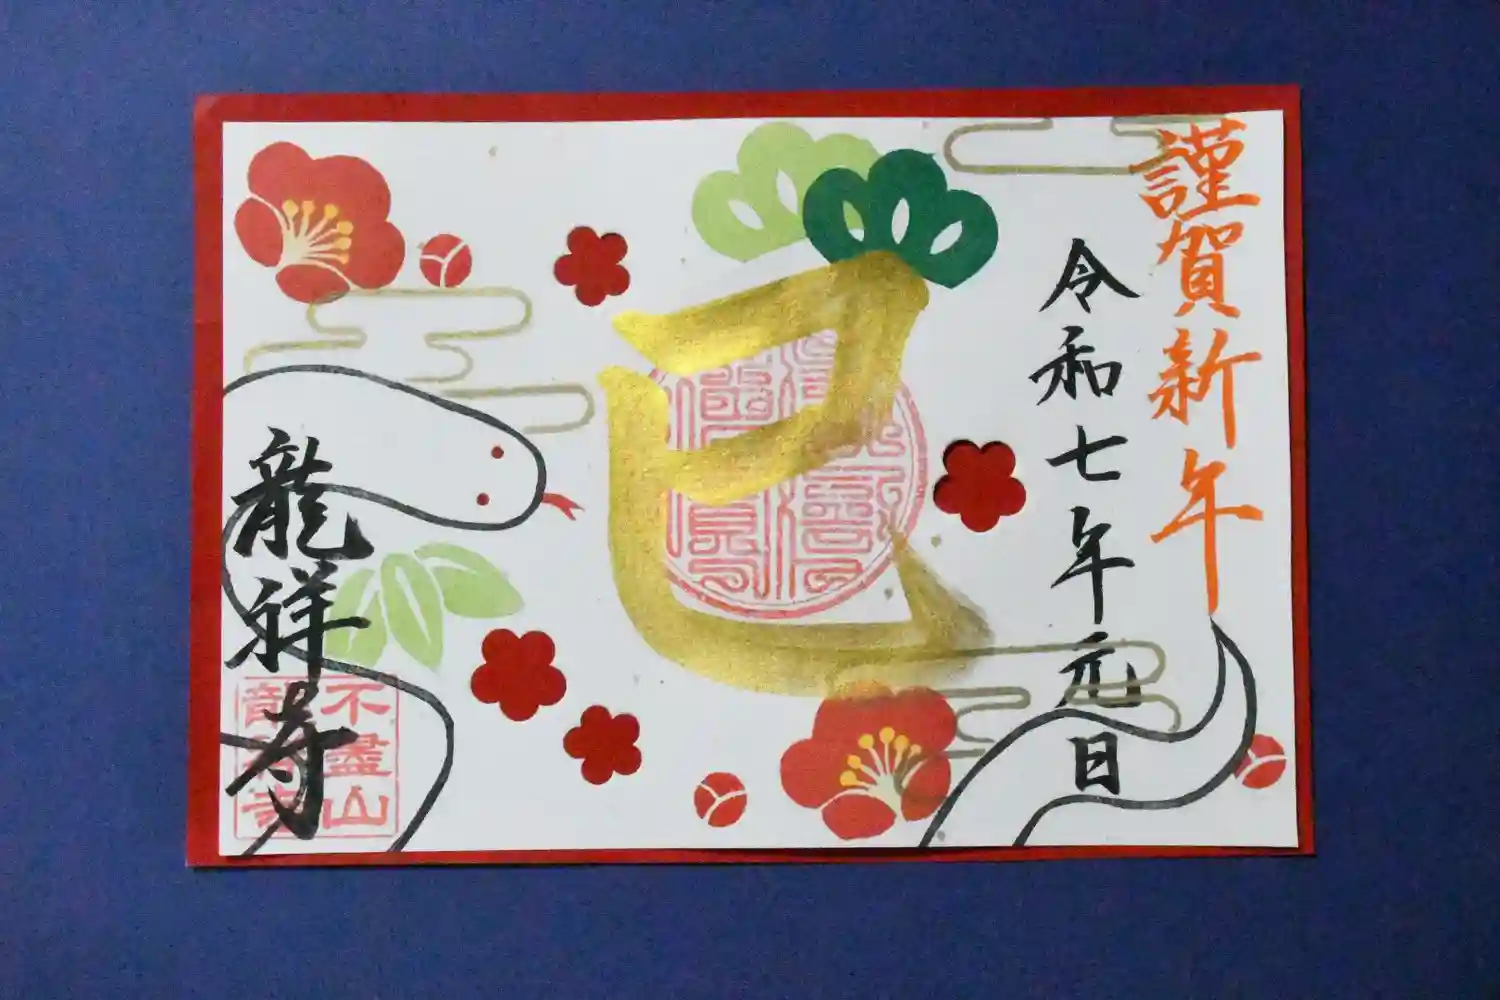 謹賀新年
令和七年元日
巳
龍祥寺
不盡山
龍祥寺